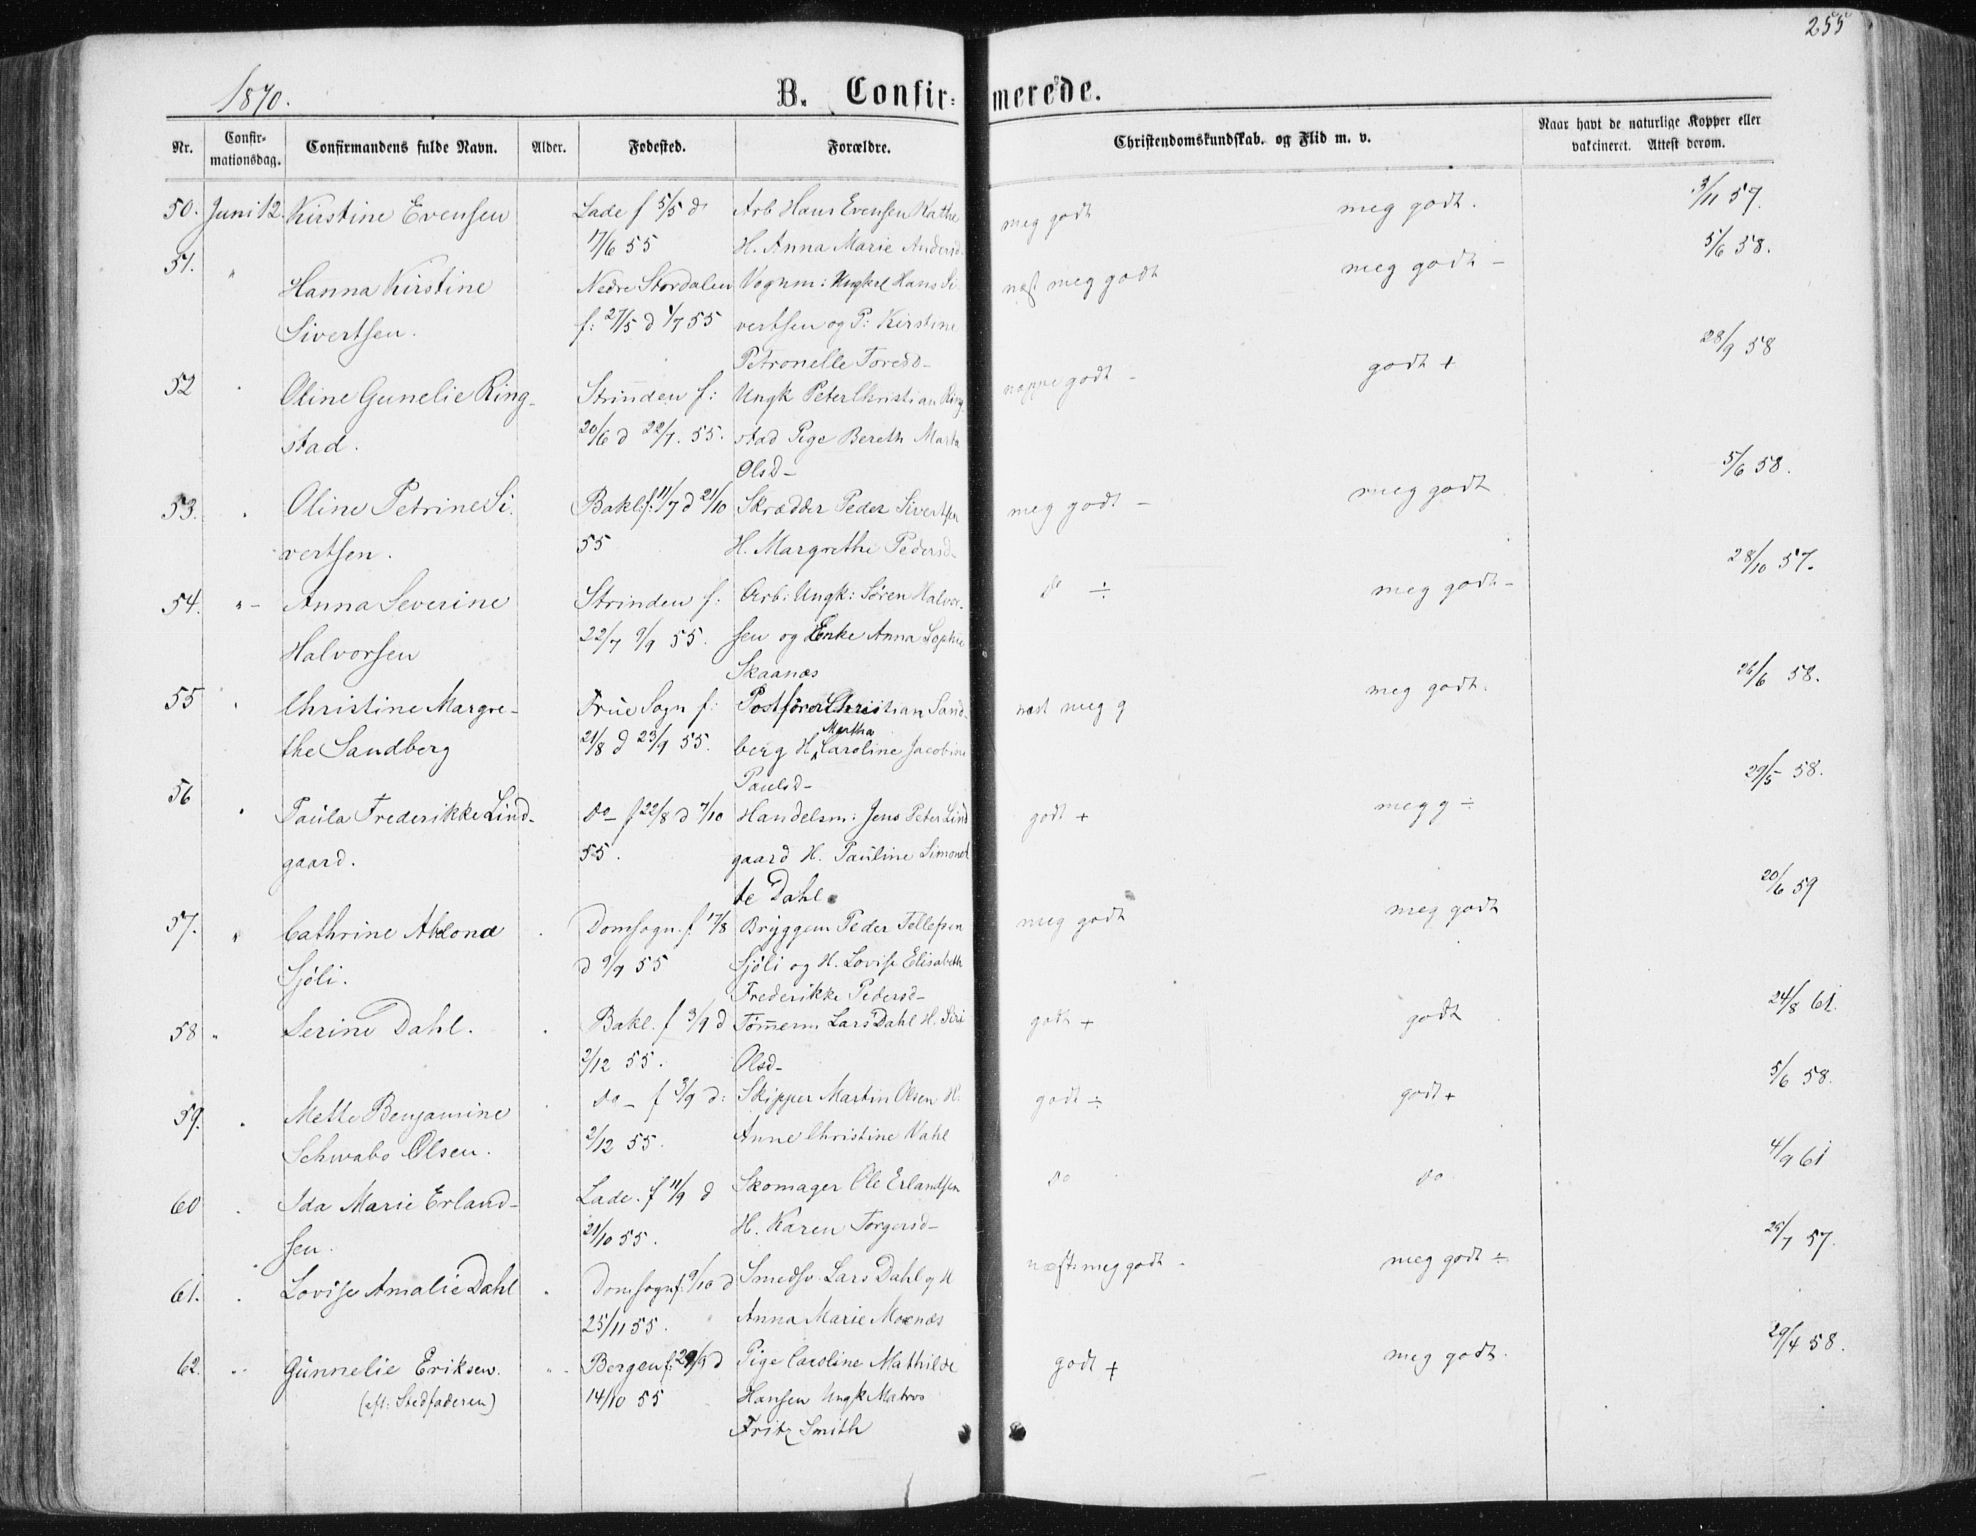 255
1870.
B. Confir-merede.
Nr. Confir-mationsdag. Confirmandens fulde Navn. Alder. Fodested. Forældre. Christendomskundskab. og Flid m. v. Naar havt de naturlige Kopper eller vakcineret. Attest derom.
50. Juni 12. Kirstine Evensen Lade f 5/5 d Arb Hans Evensen meg godt meg godt. 3/11 57.
17/6 55 H. Anna Marie Andersd
51. " Hanna Kirstine Nedre Stordalen Vognm: Ungkrl Hans Si- næst meg godt meg godt - 5/6 58.
Sivertsen. f: 27/5 d 1/7 55 vertsen og P: Kirstine
Petronelle Toresd-
52 " Oline Gunelie Ring- Strinden f: Ungk Peter Christian Ring- noppe godt - godt + 28/9 58
stad. 20/6 d 22/7. 55. stad Pige Bereth Marta
Olsd-
53. " Oline Petrine Si- Bakl: f. 11/7 d 21/10 Skrædder Peder Sivertsen meg godt - meg godt 5/6 58.
vertsen. 55 H. Margrethe Pedersd-
54. " - Anna Severine Strinden f: Arb: Ungk: Søren Halvor- do ÷ meg godt - 28/10 57.
Halvorsen 22/7 9/9 55. sen og Enke Anna Sophie
Skaanæs
55 " Christine Margre- Frue Sogn f: Postfører Christian Sand- næst meg g meg godt. 26/6 58.
the Sandberg 21/8 d 23/9 55. berg H. Martha Caroline Jacobine
Paulsd-
56 " Paula Frederikke Lind- do - f 22/8 d 7/10 Handelsm: Jens Peter Lind godt + meg g ÷ 29/5 58.
gaard. 55. gaard H. Pauline Simonet
te Dahl.
57. " Cathrine Abelone Domsogn. f. 17/8 Bryggem Peder Tellefsen meg godt meg godt 20/6 59
Sjøli. d 9/9 55 Sjøli og H. Lovise Elisabeth
Frederikke Pedersd-
58 " Serine Dahl. Bakl. f 3/9 d Tømmerm Lars Dahl H. Siri godt + godt 24/8 61.
2/12 55. Olsd-
59. " Mette Benjamine do - f 3/9 d: Skipper Martin Olsen H. godt ÷ godt + 5/6 58.
Schwabo Olsen. 2/12 55. Anne Christine Vahl
60 " Ida Marie Erland- Lade. f 11/9 d Skomager Ole Erlandsen do do 4/9 61
sen. 21/10 55. H. Karen Torgersd-
61. " Lovise Amalie Dahl Domsogn f. 9/10 d Smedsv. Lars Dahl og H næst meg godt - meg godt ÷ 25/7 57.
25/11 55. Anna Marie Moxnæs
62. " Gunnelie Eriksen. Bergen f. 29/9 d Pige Caroline Mathilde godt + meg godt. 29/4 58.
(eft: Stedfaderen) 14/10 55 Hansen Ungk Matros
Fritz Smith